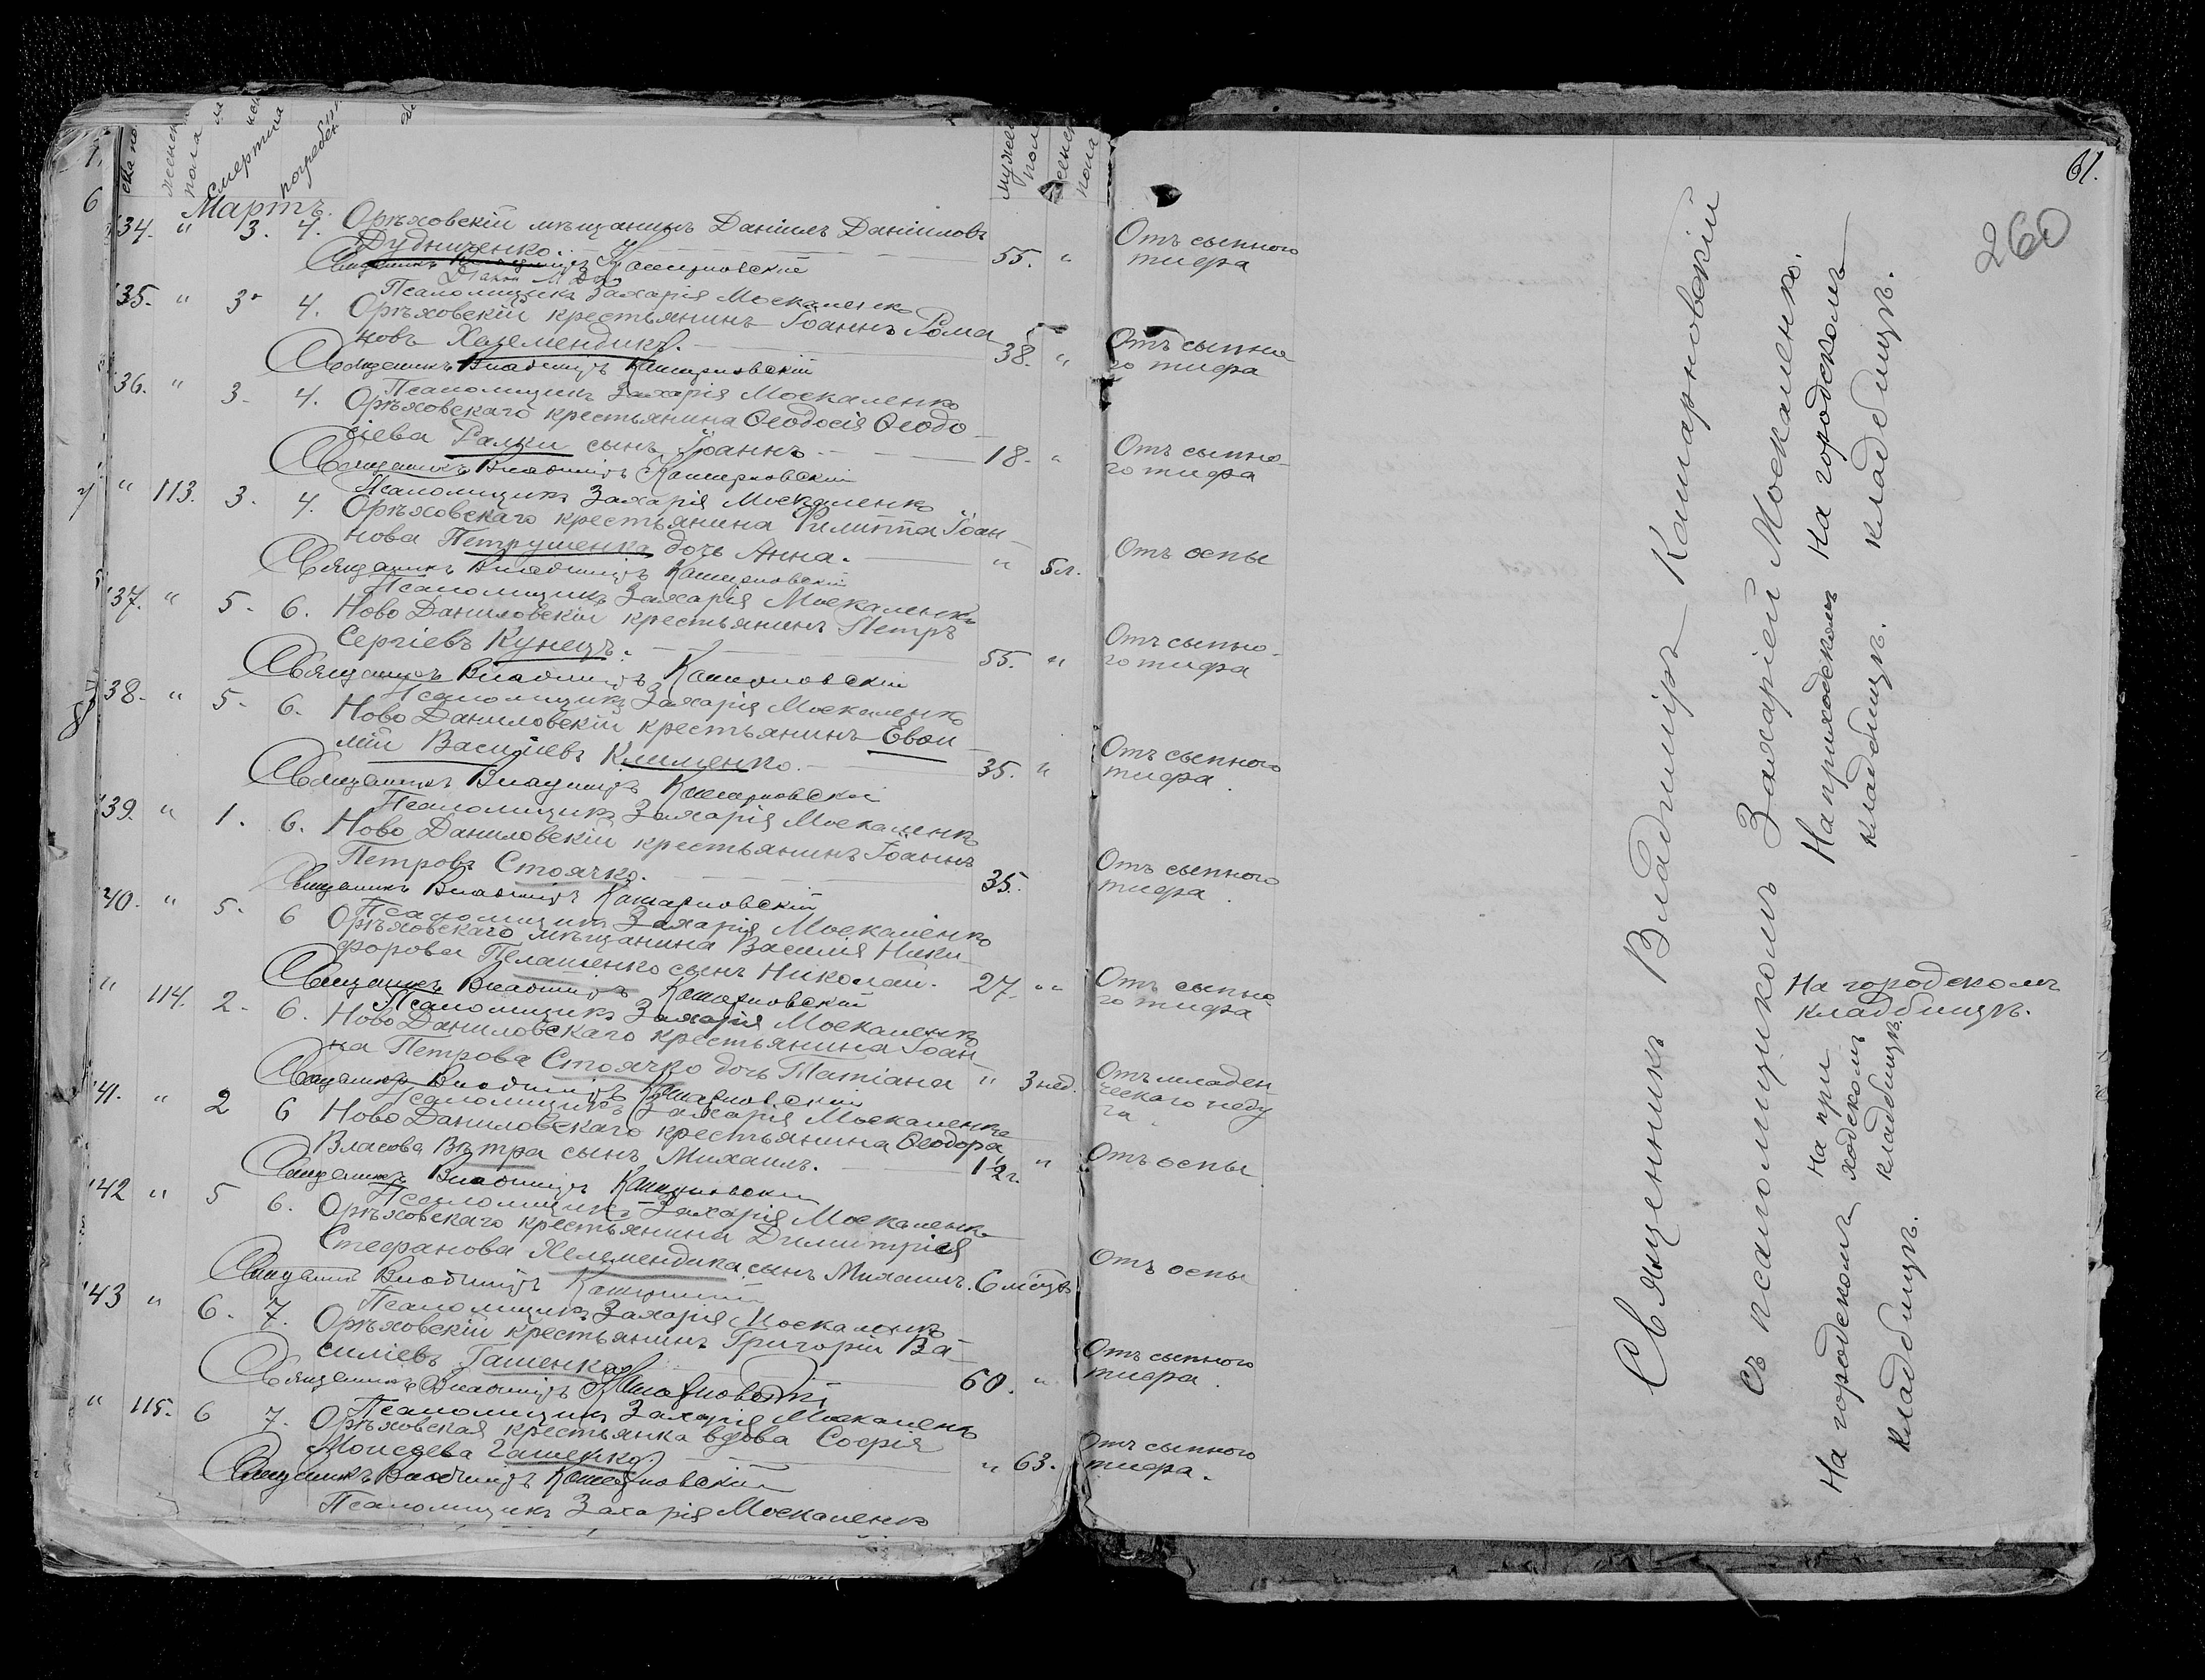 женска
пола
смерти
погребен
мужск
пола
женск
пола
Мартъ.
134. " 3. 4. Орѣховскій мѣщанинъ Даніилъ Даніиловъ
Дудниченко. 55. "
Отъ сыпного
тифа
Священникъ Владиміръ Кашарновскій
Псаломщикъ Захарія Москаленко
135. " 3. 4. Орѣховскій крестьянинъ Іоаннъ Рома
новъ Хелемендикъ. 38. "
Отъ сыпно
го тифа
Священникъ Владиміръ Кашарновскій
Псаломщикъ Захарія Москаленко
136. " 3. 4. Орѣховскаго крестьянина Ѳеодосія Ѳеодо
сіева Ралки сынъ Іоаннъ 18. "
Отъ сыпно-
го тифа
Священникъ Владиміръ Кашарновскій
Псаломщикъ Захарія Москаленко
" 113. 3. 4. Орѣховскаго крестьянина Филиппа Іоан-
нова Петрушенка дочь Анна. " 5л.
Отъ оспы
Священникъ Владиміръ Кашарновскій
Псаломщикъ Захарія Москаленко
137. " 5. 6. Ново Даниловскій крестьянинъ Петръ
Сергіевъ Кунецъ. 55. "
Отъ сыпно-
го тифа
Священникъ Владиміръ Кашарновскій
Псаломщикъ Захарія Москаленко
138. " 5. 6. Ново Даниловскій крестьянинъ Евѳи
мій Василіевъ Клименко. 35. "
Отъ сыпного
тифа.
Священникъ Владиміръ Кашарновскій
Псаломщикъ Захарія Москаленко
139. " 1. 6. Ново Даниловскій крестьянинъ Іоаннъ
Петровъ Стоячко. 35.
Отъ сыпного
тифа.
Священникъ Владиміръ Кашарновскій
Псаломщикъ Захарія Москаленко
140. " 5. 6 Орѣховскаго мѣщанина Василія Ники-
форова Пелашенко сынъ Николай. 27. "
Отъ сыпно
го тифа
Священникъ Владиміръ Кашарновскій
Псаломщикъ Захарія Москаленко
" 114. 2. 6. Ново Даниловскаго крестьянина Іоан-
на Петрова Стоячко дочь Татіана " 3 нед.
Отъ младен
ческаго неду
га.
Священникъ Владиміръ Кашарновскій
Псаломщикъ Захарія Москаленко
141. " 2 6 Ново Даниловскаго крестьянина Ѳеодора
Власова Вѣтра сынъ Михаилъ. 1½г. "
Отъ оспы
Священникъ Владиміръ Кашарновскій
Псаломщикъ Захарія Москаленко
142 " 5 6. Орѣховскаго крестьянина Димитрія
Стефанова Хелемендика сынъ Михаилъ. 6 мѣсцвъ
Отъ оспы
Священникъ Владиміръ Кашарновскій
Псаломщикъ Захарія Москаленко
143 " 6. 7. Орѣховскій крестьянинъ Григорій Ва-
силіевъ Гашенко. 60. "
Отъ сыпного
тифа.
Священникъ Владиміръ Кашарновскій
Псаломщикъ Захарія Москаленко
" 115. 6 7. Орѣховская крестьянка вдова Софія
Моисеева Гашенко. " 63.
Отъ сыпного
тифа.
Священникъ Владиміръ Кашарновскій
Псаломщикъ Захарія Москаленко
61.
260
Священникъ Владиміръ Кашарновскій
съ псаломщикомъ Захаріей Москаленко.
На городскомъ
кладбищѣ.
На при
ходскомъ
кладбищѣ.
На городскомъ
кладбищѣ.
На приходскомъ
кладбищѣ.
На городскомъ
кладбищѣ.